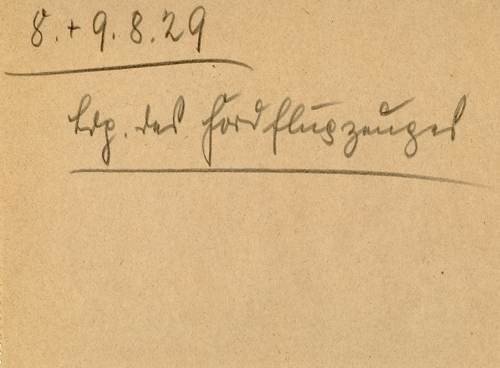 8. + 9. 8. 29
Ldg. des Fordflugzeuges